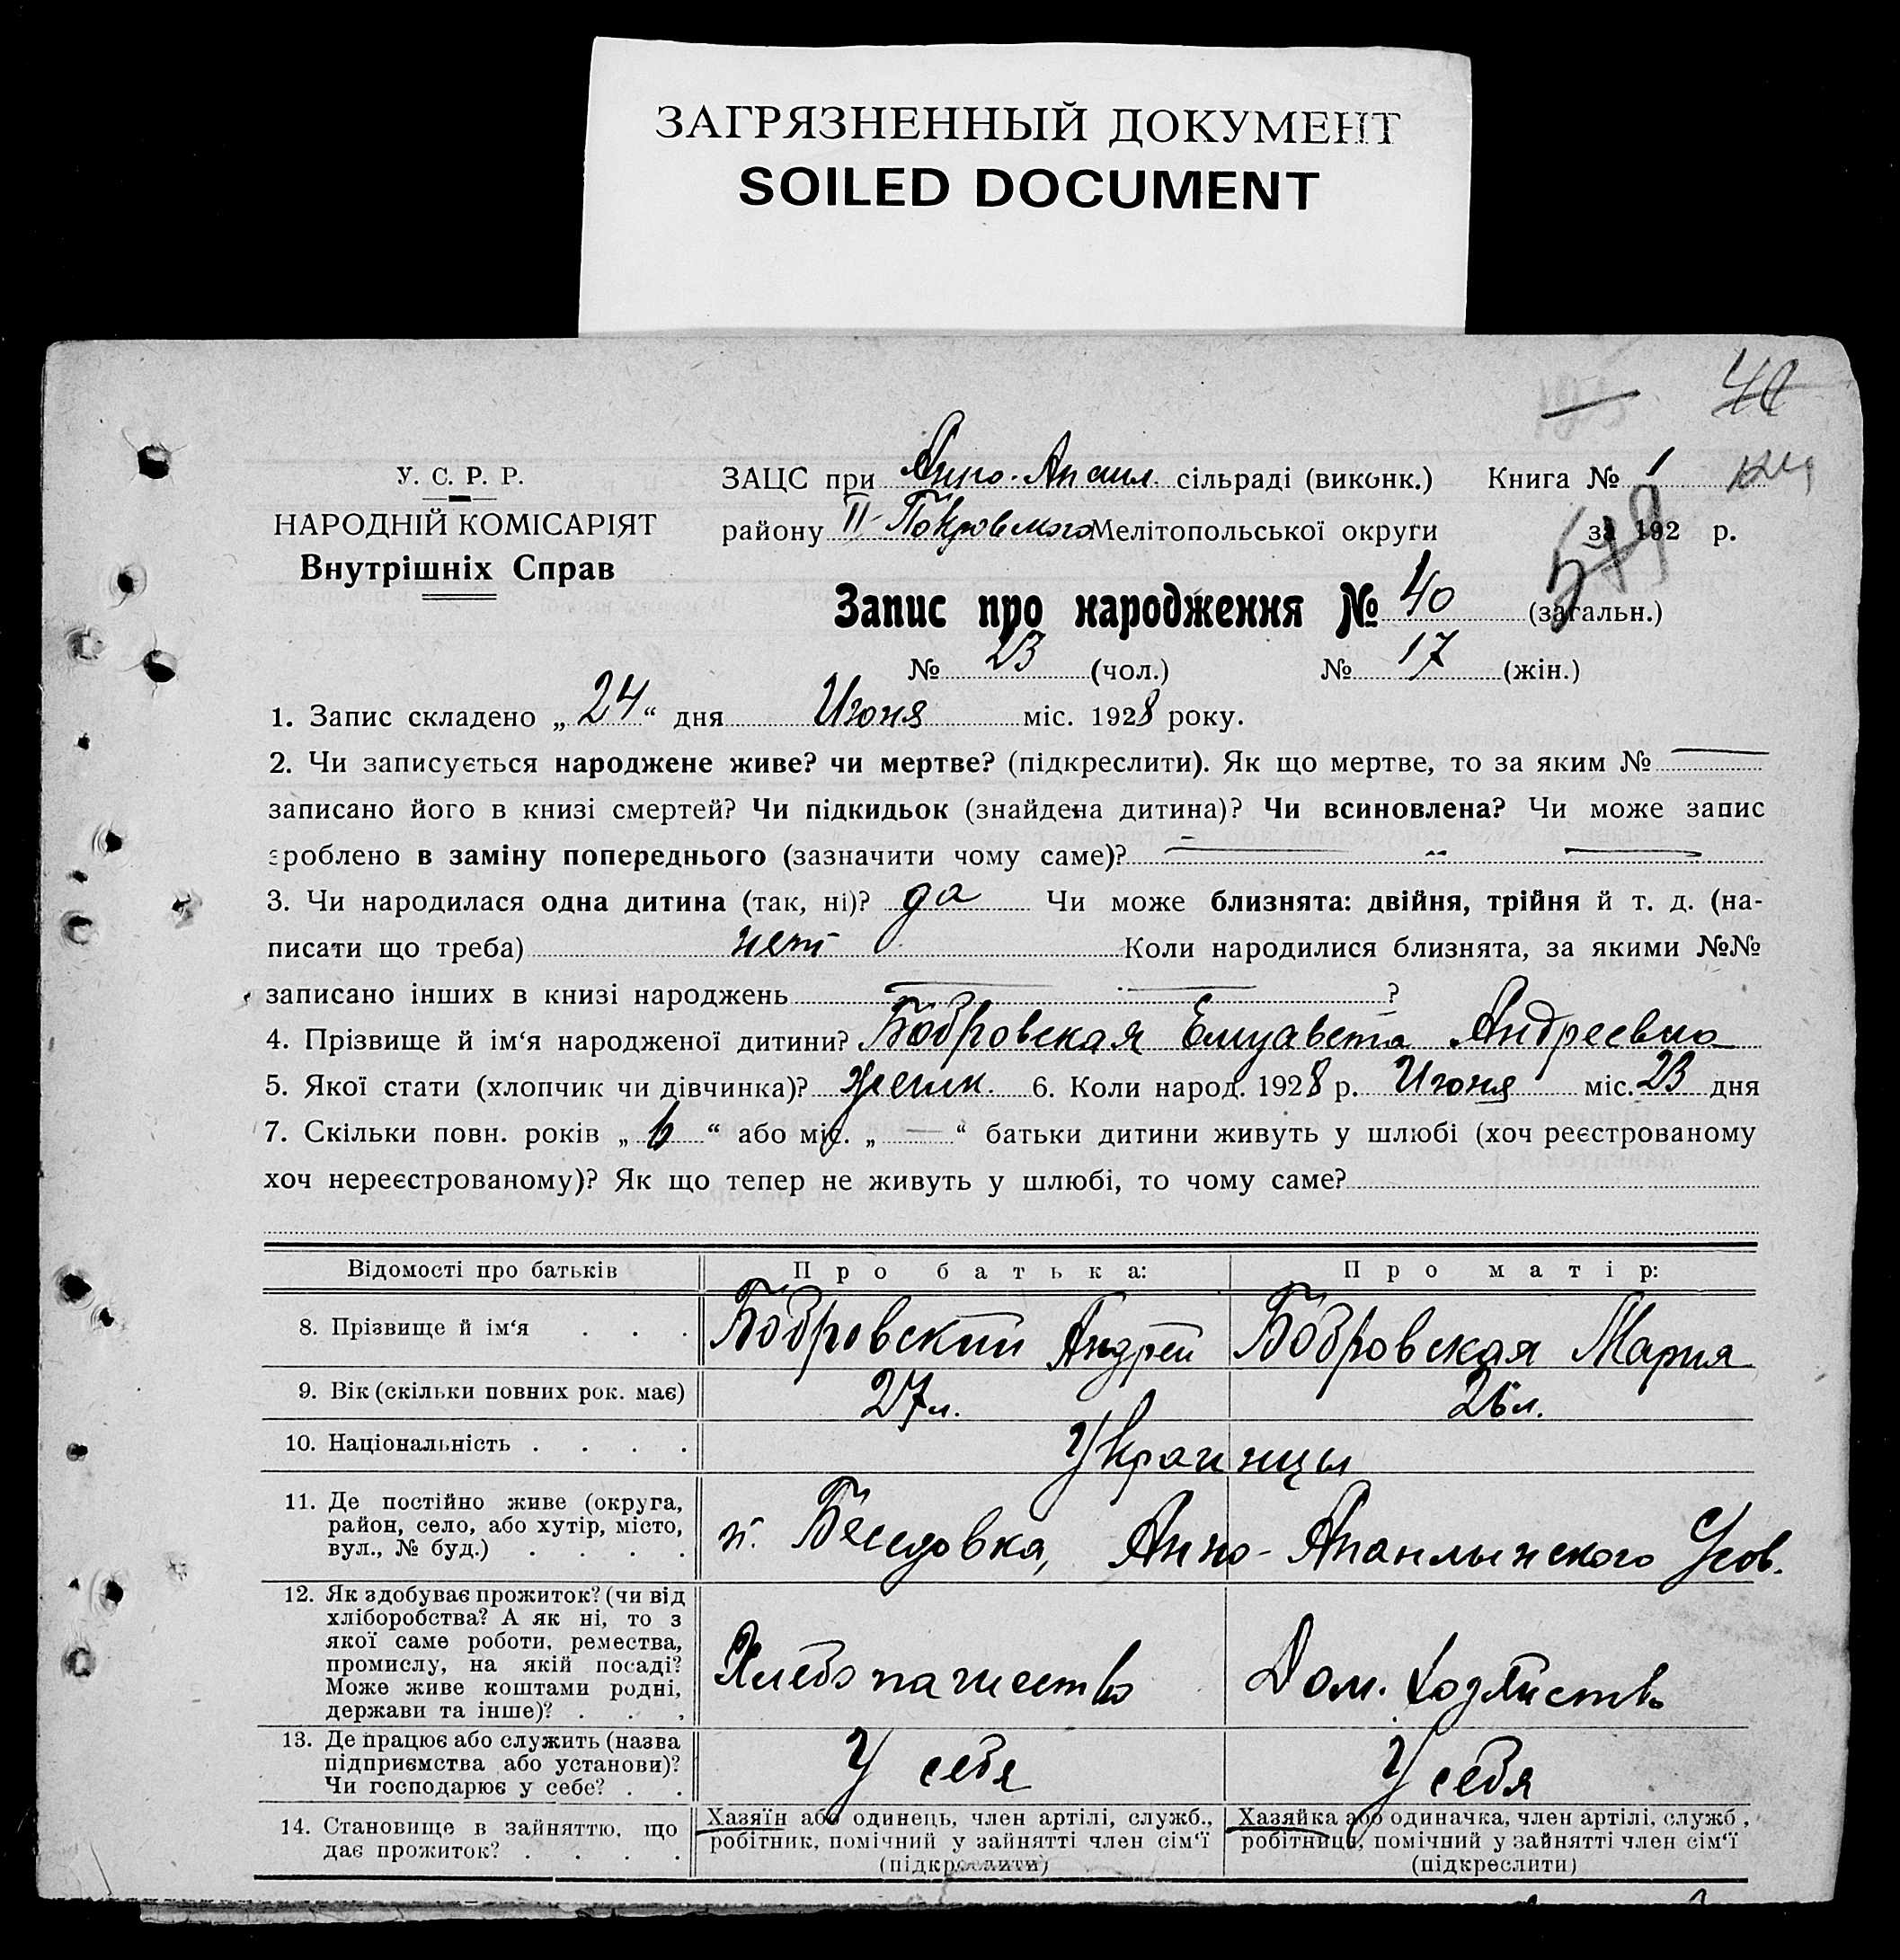 ЗАГРЯЗНЕННЫЙ ДОКУМЕНТ
SOILED DOCUMENT
У. С. Р. Р.
НАРОДНІЙ КОМІСАРІЯТ
Внутрішніх Справ
ЗАЦС при Анно-Апанл. сільраді (виконк.) Книга № 1
району II-Покровского Мелітопольської округи за 192 р.
579
Запис про народження № 40 (загальн.)
№ 23 (чол.) № 17 (жін.)
1. Запис складено „24“ дня Июня міс. 1928 року.
2. Чи записується народжене живе? чи мертве? (підкреслити). Як що мертве, то за яким №
записано його в книзі смертей? Чи підкидьок (знайдена дитина)? Чи всиновлена? Чи може запис
зроблено в заміну попереднього (зазначити чому саме)?
3. Чи народилася одна дитина (так, ні)? да Чи може близнята: двійня, трійня й т. д. (на-
писати що треба) нет Коли народилися близнята, за якими №№
записано інших в книзі народжень ?
4. Прізвище й ім‘я народженої дитини? Бобровская Елизавета Андреевна
5. Якої стати (хлопчик чи дівчинка)? женск. 6. Коли народ. 1928 р. Июня міс. 23 дня
7. Скільки повн. років „6“ або міс. „—“ батьки дитини живуть у шлюбі (хоч реєстрованому
хоч нереєстрованому)? Як що тепер не живуть у шлюбі, то чому саме?
Відомості про батьків Про батька: Про матір:
8. Прізвище й ім‘я . . . Бобровский Андрей Бобровская Мария
9. Вік (скільки повних рок. має) 27 л. 26 л.
10. Національність . . . . Украинцы
11. Де постійно живе (округа,
район, село, або хутір, місто,
вул., № буд.) . . . .
п. Беседовка, Анно-Апанлынского Усов.
12. Як здобуває прожиток? (чи від
хліборобства? А як ні, то з
якої саме роботи, ремества,
промислу, на якій посаді?
Може живе коштами родні,
держави та інше)? . . .
Хлебопашество Дом. хозяйство
13. Де працює або служить (назва
підприємства або установи)?
Чи господарює у себе? . .
У себя У себя
14. Становище в зайняттю, що
дає прожиток? . . . .
Хазяїн або одинець, член артілі, служб.,
робітник, помічний у зайнятті член сім‘ї
(підкреслити)
Хазяйка або одиначка, член артілі, служб.,
робітниця, помічний у зайнятті член сім‘ї
(підкреслити)